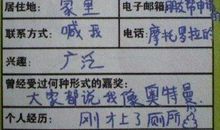 居住地: 家里 电子邮箱
联系方式: 喊我 电话: 摩托罗拉的
兴趣: 广泛
曾经受过何种形式的嘉奖:
大家都说我像奥特曼
个人经历: 刚才上了厕所